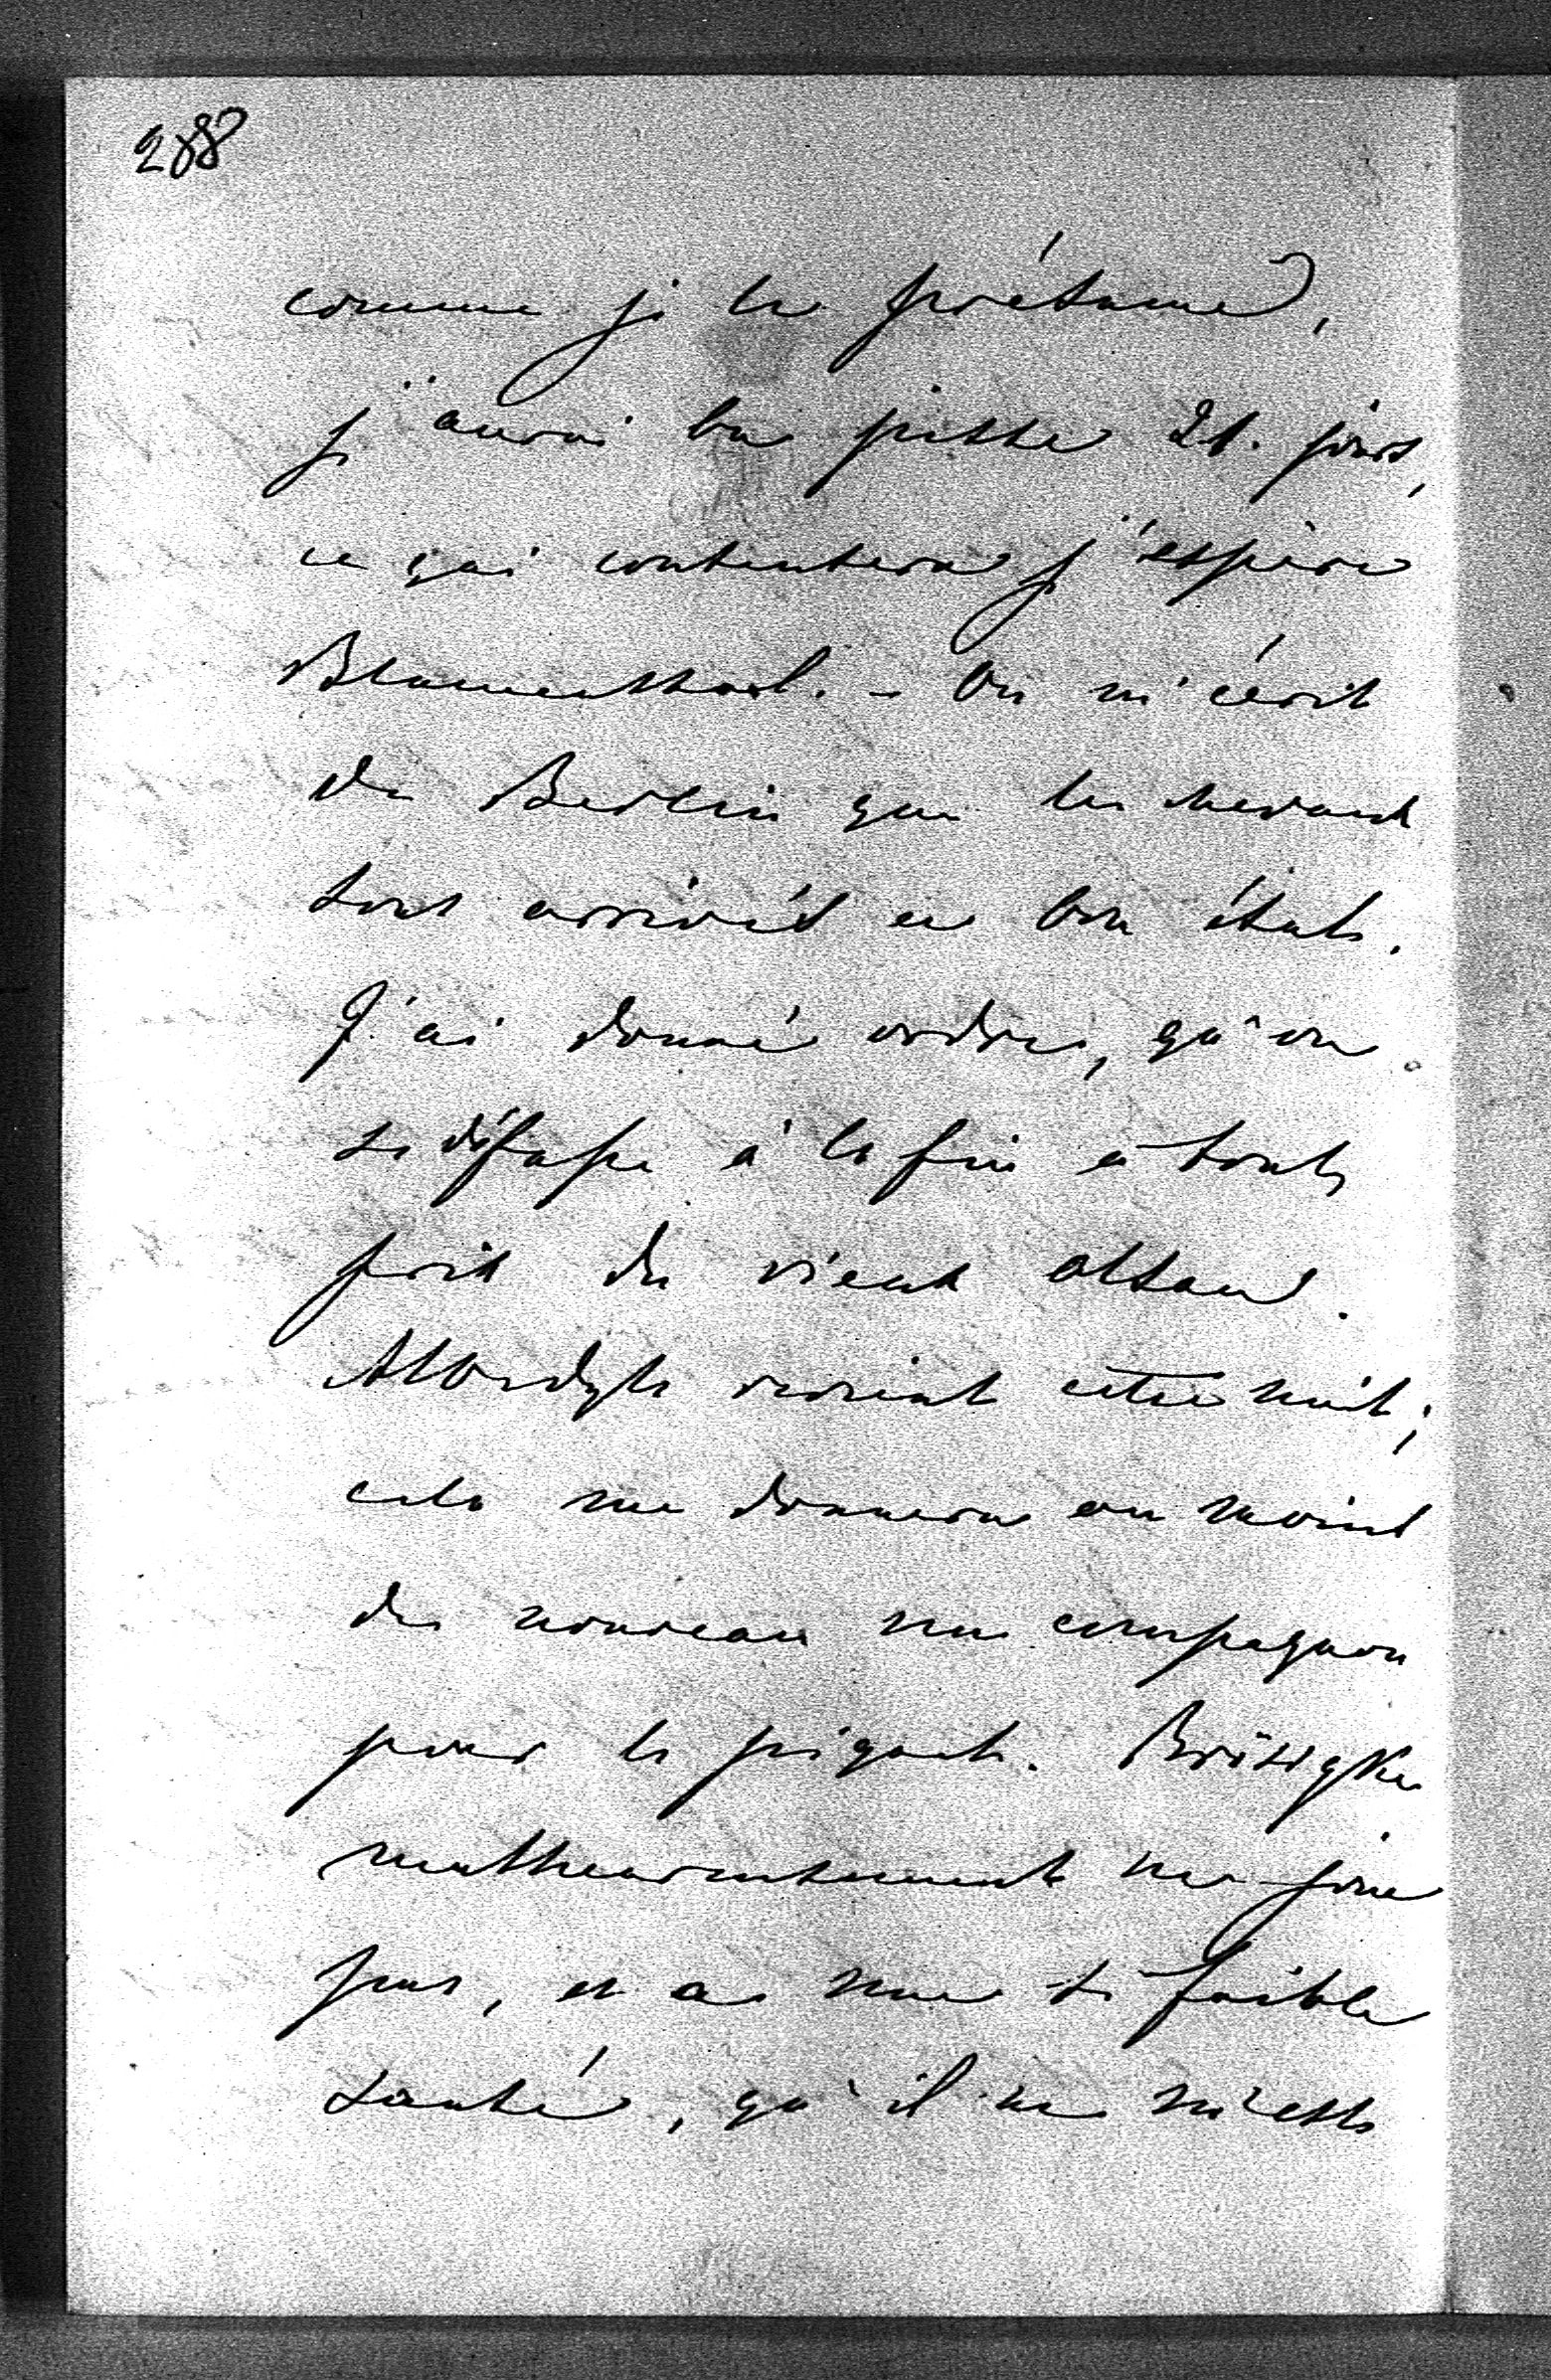 288
comme je le présume,
j'aurai bu juste 21. jours,
ce qui contentera j'espère
Blumenthal. - On m'écrit
de Berlin que les chevaux
sont arrivés en bon état.
J'ai donné ordre, qu'on
se défasse à la fin à tout
prix du vieux
revient cette nuit;
cela me donnera au moins
de nouveau un compagnon
pour le piquet. Brösigke
malheureusement ne joue
pas, et a une si faible
santé, qu'il ne m'est